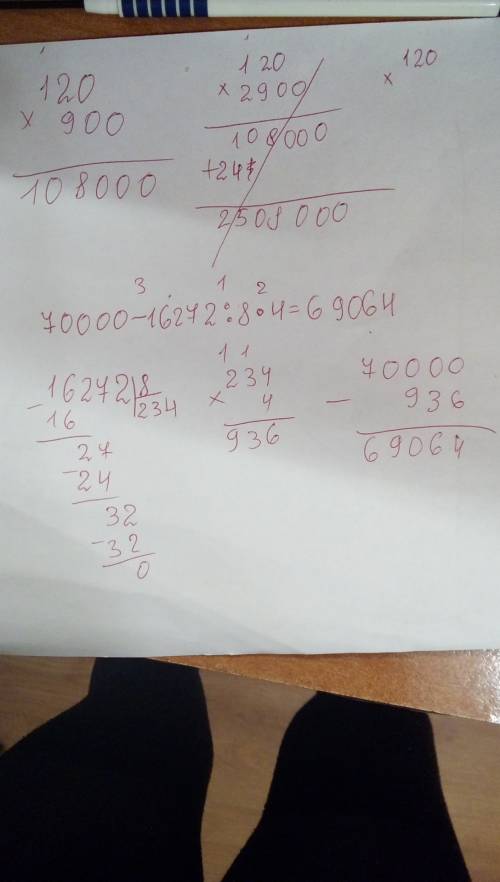 120
× 900
108000
120
× 2900
108000
+ 24
2508000
× 120
3 1 2
70000-16272:8·4=69064
- 16272 8
16 234
27
- 24
32
- 32
0
1 1
234
× 4
936
70000
- 936
69064